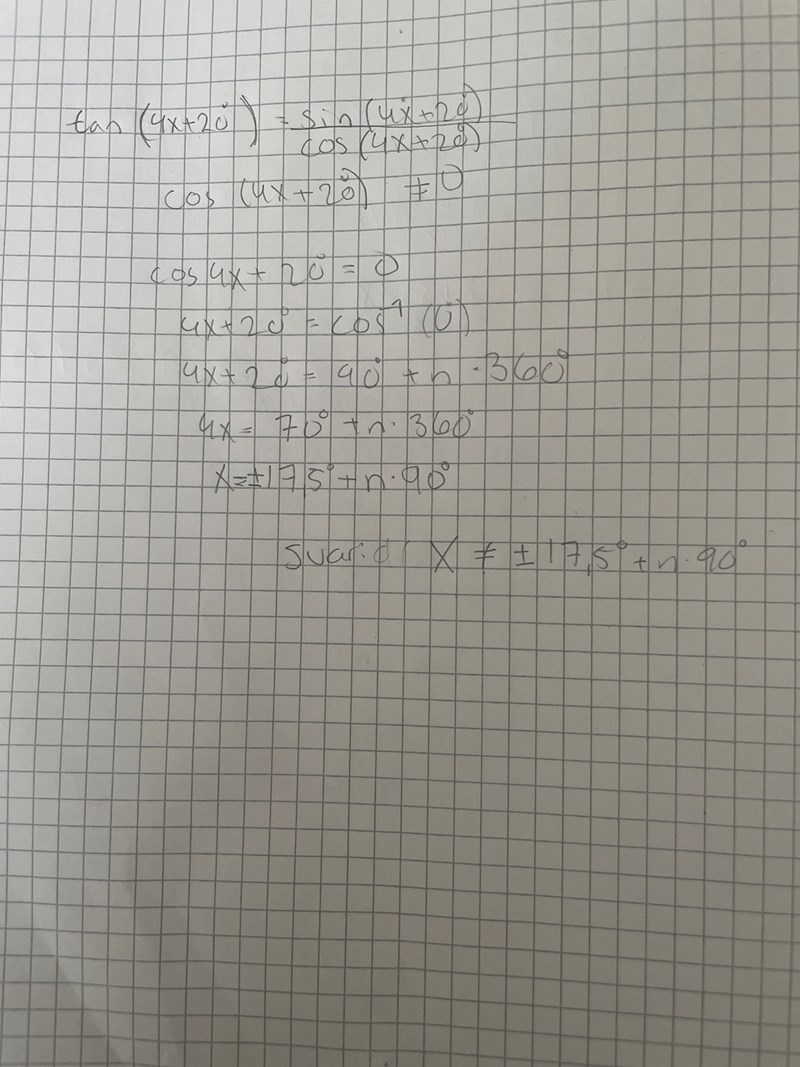 tan (4x+20°) = sin (4x+20°) / cos (4x+20°)
cos (4x+20°) ≠ 0
cos 4x + 20° = 0
4x+20° = cos⁻¹ (0)
4x+20° = 90° + n · 360°
4x = 70° + n · 360°
x = ±17,5° + n · 90°
Svar: x ≠ ±17,5° + n · 90°